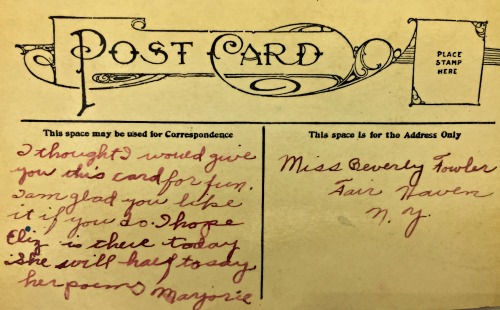 POST CARD
PLACE
STAMP
HERE
This space may be used for Correspondence
I thought I would give
you this card for fun.
I am glad you like
it if you do. I hope
Eliz is there today
She will haf to say
her poems Marjorie
This space is for the Address Only
Miss Beverly Fowler
Fair Haven
N.Y.